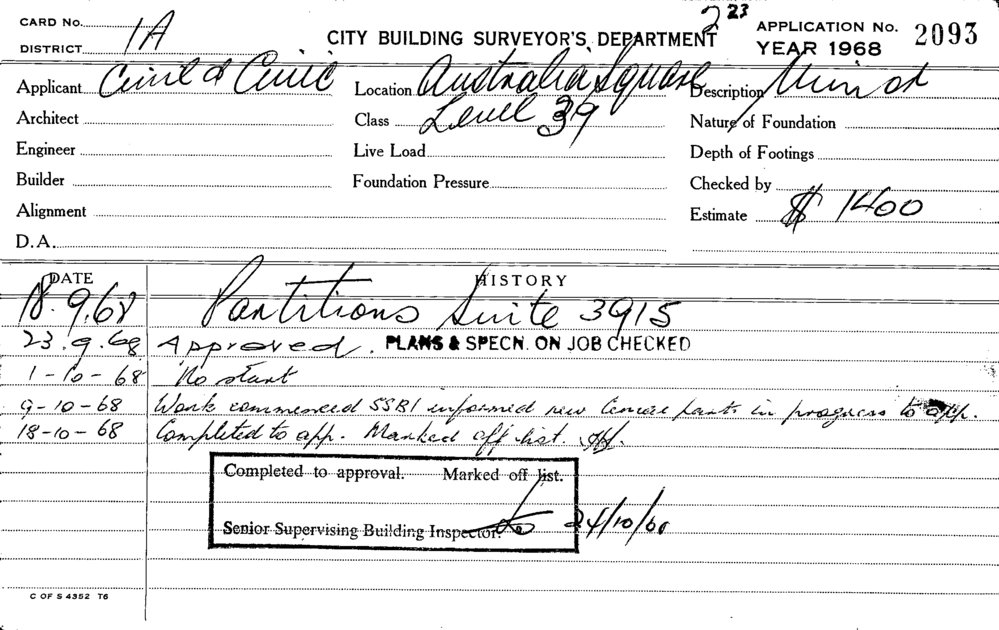 CARD No.
DISTRICT 1A
CITY BUILDING SURVEYOR'S DEPARTMENT
2 23
APPLICATION No. 2093
YEAR 1968
Applicant Civil & Civic
Location Australia Square
Description Minor
Architect
Class Level 39
Nature of Foundation
Engineer
Live Load
Depth of Footings
Builder
Foundation Pressure
Checked by
Alignment
Estimate $ 1400
D.A.
DATE HISTORY
18.9.68 Partitions Suite 3915
23.9.68 Approved. PLANS & SPECN. ON JOB CHECKED
1-10-68 No start
9-10-68 Work commenced SSBI informed new part in progress to app.
18-10-68 Completed to app. Marked off list.
Completed to approval. Marked off list.
Senior Supervising Building Inspector. 24/10/68
C OF S 4352 T6